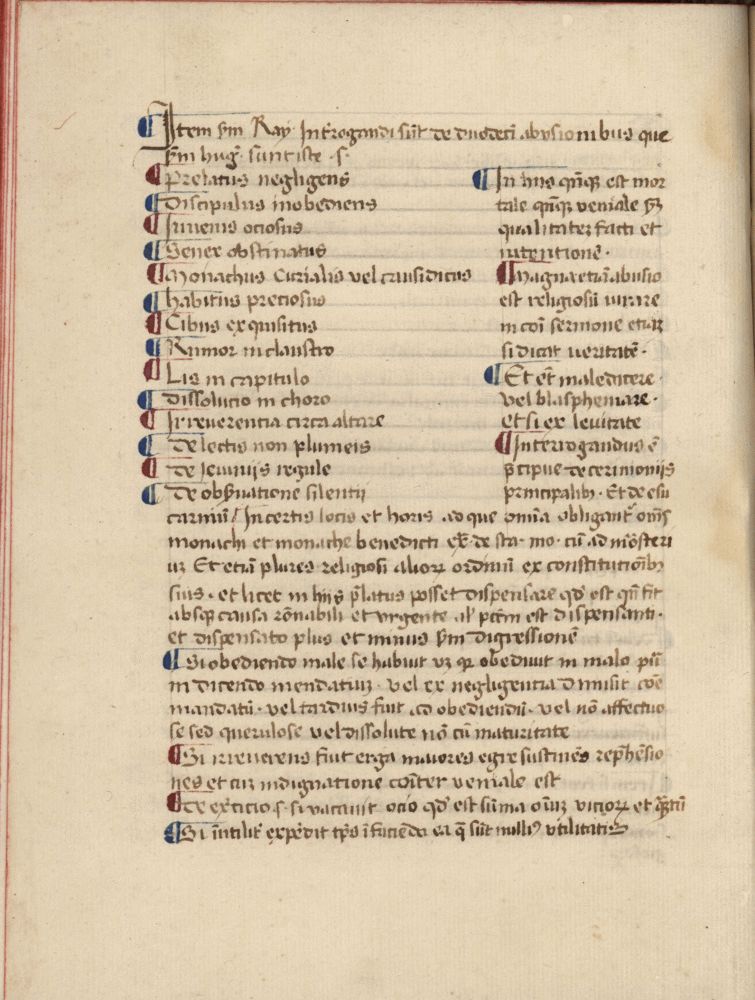 Item sm Ray Introgandi sūt de duodecī abusionibus que
sm hug̃ · sunt iste · s ·
Prelatus negligens
Discipulus inobediens
Iuvenis ociosus
Senex obstinatus
Monachus Curialis vel causidicus
habitus preciosus
Cibus exquisitus
Rumor in claustro
Lis in capitulo
dissolucio in choro
Irreuerentia circa altare
De lectis non plumeis
De Jeiunijs regule
De obsruatione silentii
In hiis qnq̃ est mor
tale qnq̃ veniale sm
qualitatez facti et
intentione ·
Magna etiā abusio
est religiosū iurare
in coī sermone etiaz
si dicat ueritatē ·
Et et maledicere ·
vel blasphemare ·
et si ex leuitate
Interrogandus ē
p̄cipue de cerimoniis
principalib · Et de esu
carniū / In certis locis et horis · ad que om̄ia obligant̄ om̄s
monachi et monache benedicti ex̄ · de sta · mo · cū ad mōsteri
uz Et etiā plures religiosi alioꝝ ordinū ex constitutiōibꝫ
suis · et licet in hiis p̄latus posset dispensare qd̄ est qn̄ fit
absqꝫ causa rōnabili et vrgente al' pctm est dispensanti ·
et dispensato plus et minus sm digressionē
Si obediendo male se habuit vz qꝛ obediuit in malo pūi
in dicendo mendatiuz · vel ex negligentia dimisit cōe
mandatū · vel tardius fuit ad obediendū · vel nō affectuo
se sed querulose vel dissolute nō cū maturitate
Si irreuerens fuit erga maiores egre sustinēs rep̄hēsio
nes et cuz indignatione cōiter veniale est
De ex̄ticio · s · si vacauit ocio qd̄ est sūma oīuz vitioꝝ et
Si īutilit̄ expēdit tp̄s ī faciēdo ea q̄ sūt nulliꝰ vtilitatis